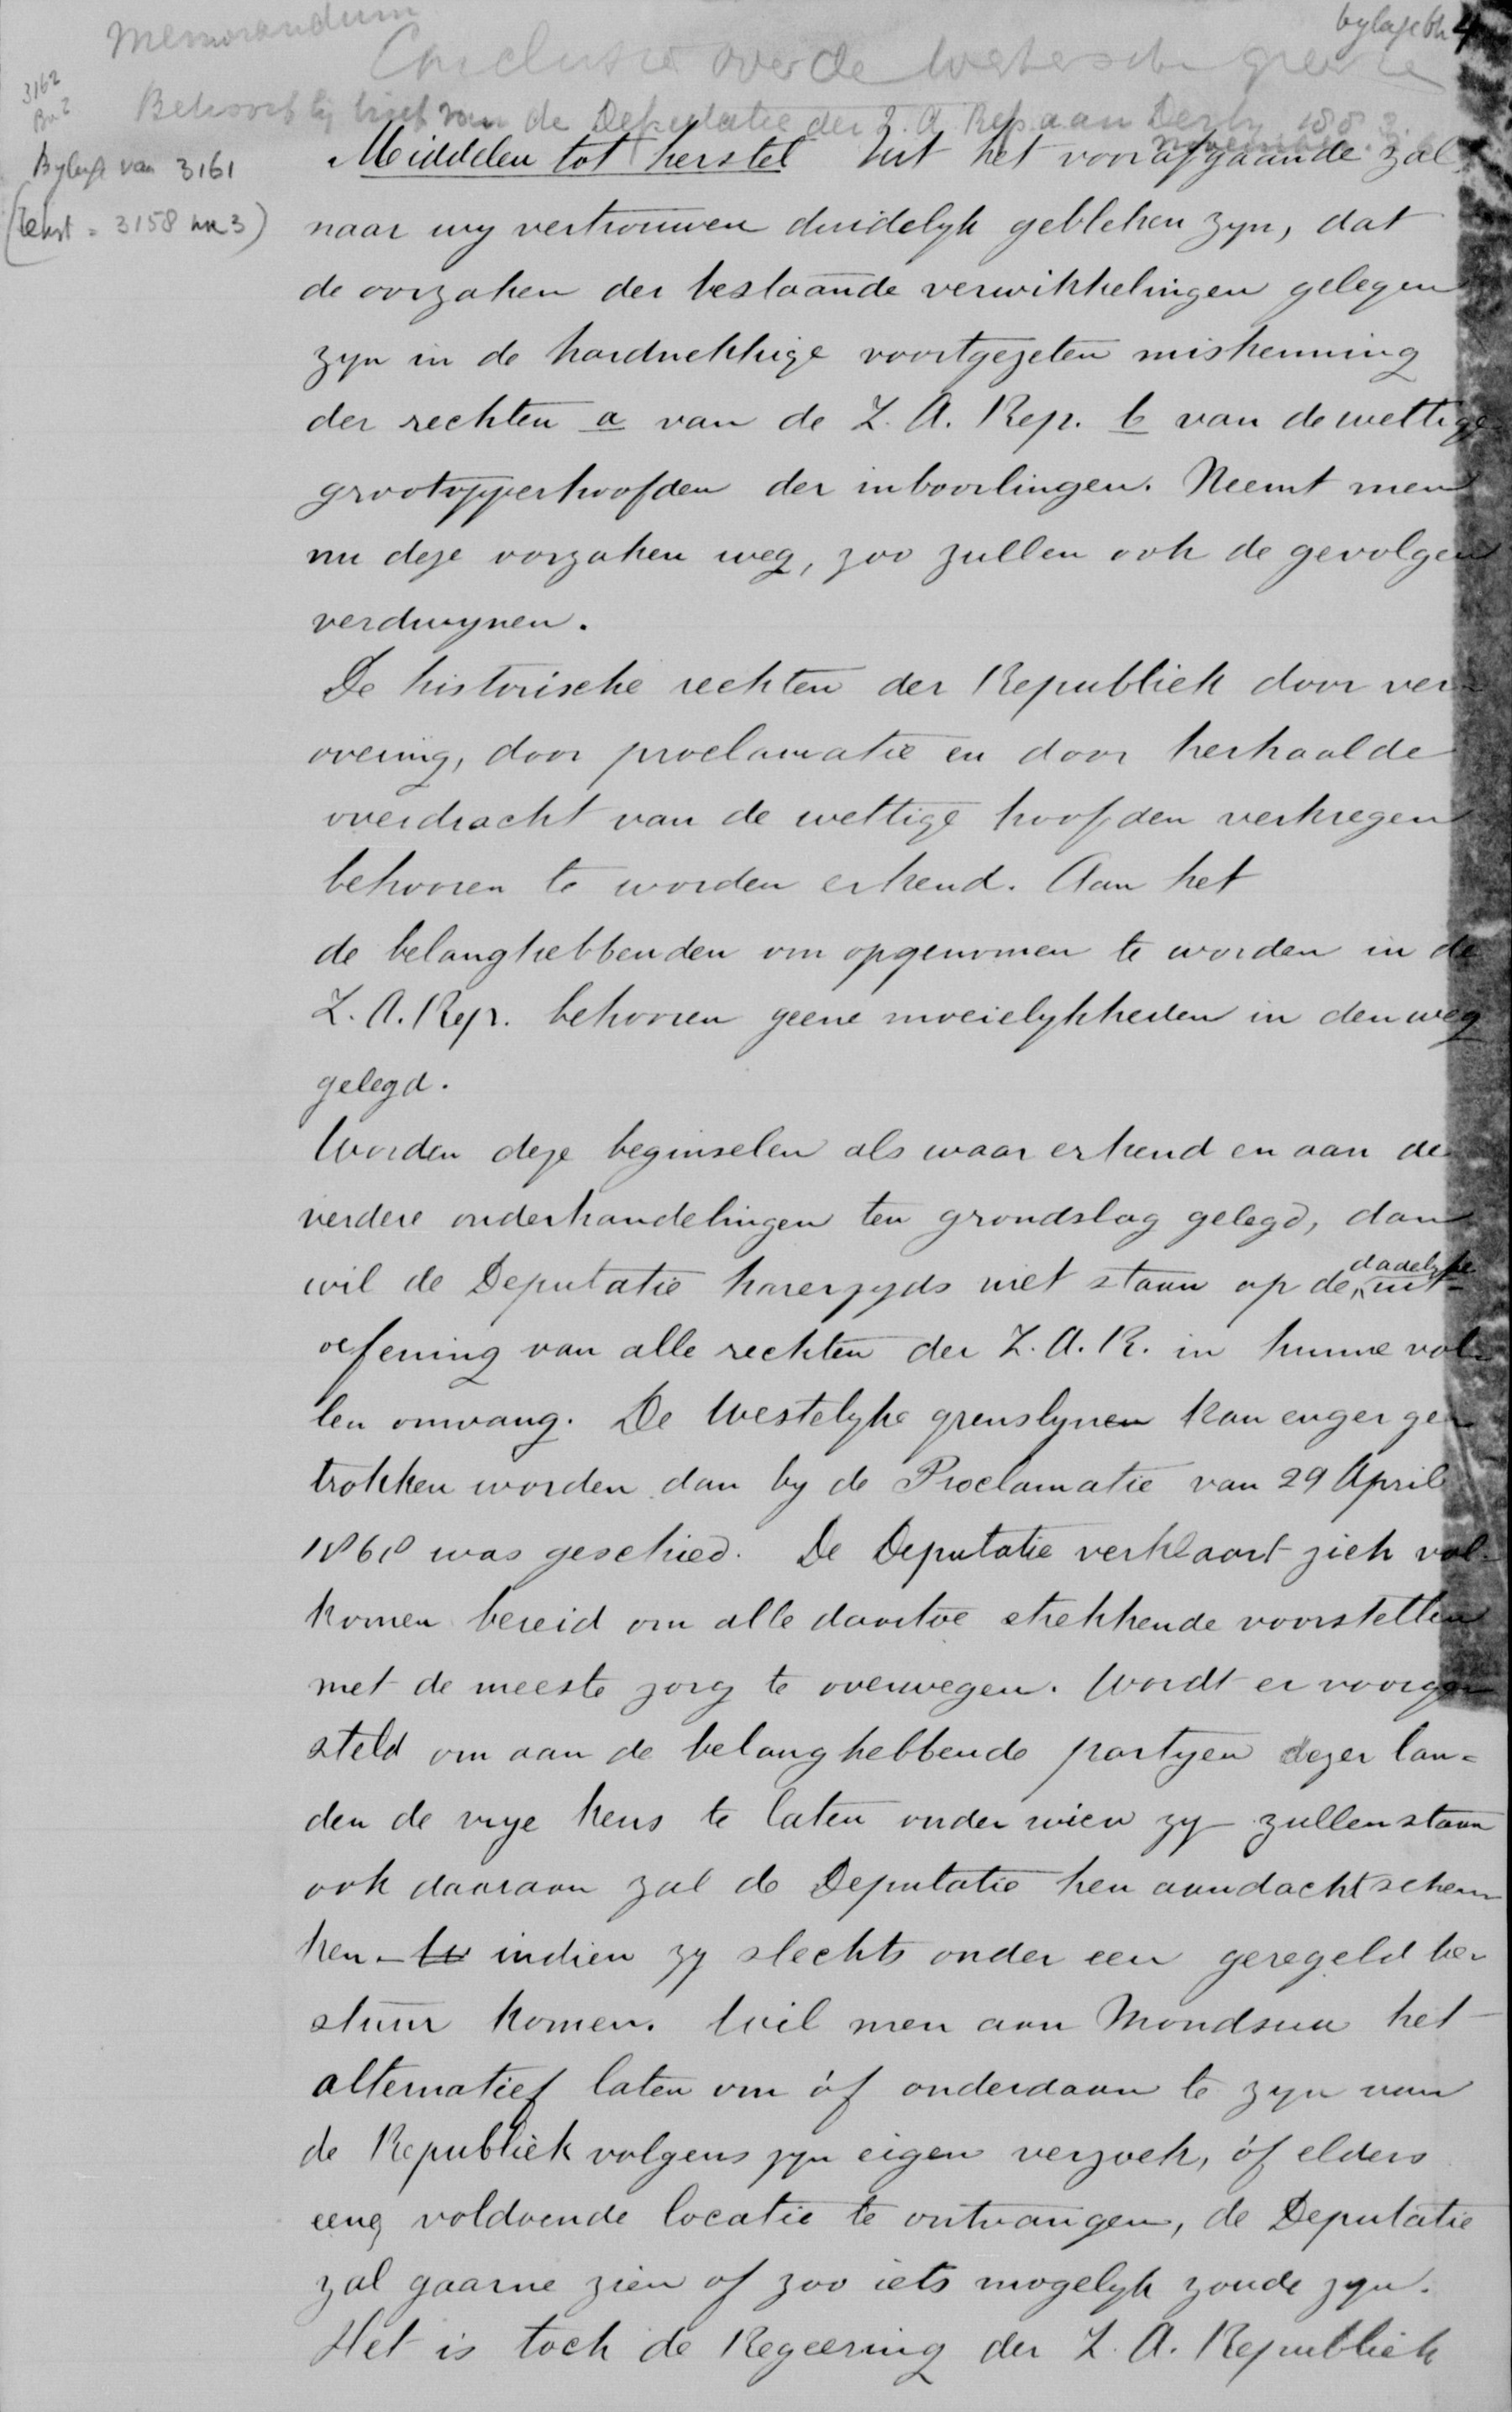 Memorandum
bylage bh 4
Conclusie over de westersche grens
3162
Behoort bij brief van de Deputatie der Z. A. Rep. aan Derby 188
november
Bylage van 3161
(tekst = 3158 no 3)
Middelen tot herstel Uit het voorafgaande zal
naar wy vertrouwen duidelyk gebleken zyn, dat
de oorzaken der bestaande verwikkelingen gelegen
zyn in de hardnekkige voortgezeten miskenning
der rechten a van de Z. A. Rep. b van de wettige
grootopperhoofden der inboorlingen. Neemt men
nu deze oorzaken weg, zoo zullen ook de gevolgen
verdwynen.
De historische rechten der Republiek door ver-
overing, door proclamatie en door herhaalde
overdracht van de wettige hoofden verkregen
behooren te worden erkend. Aan het
de belanghebbenden om opgenomen te worden in de
Z. A. Rep. behooren geene moeielykheden in den weg
gelegd.
Worden deze beginselen als waar erkend en aan de
verdere onderhandelingen ten grondslag gelegd, dan
wil de Deputatie harerzyds niet staan op de dadelyke uit-
oefening van alle rechten der Z. A. R. in hunne vol-
len omvang. De Westelyke grenslynen kan enger ge-
trokken worden dan by de Proclamatie van 29 April
1868 was geschied. De Deputatie verklaart zich vol-
komen bereid om alle daartoe strekkende voorstellen
met de meeste zorg te overwegen. Wordt er voorge-
steld om aan de belanghebbende partyen dezer lan-
den de vrye keus te laten onder wien zy zullen staan
ook daaraan zal de Deputatie hen aandacht schen-
ken - indien zy slechts onder een geregeld be-
stuur komen. Wil men aan Mondsua het
alternatief laten om óf onderdaan te zyn van
de Republiek volgens zyn eigen verzoek, óf elders
eene voldoende locatie te ontvangen, de Deputatie
zal gaarne zien of zoo iets mogelyk zoude zyn.
Het is toch de Regeering der Z. A. Republiek